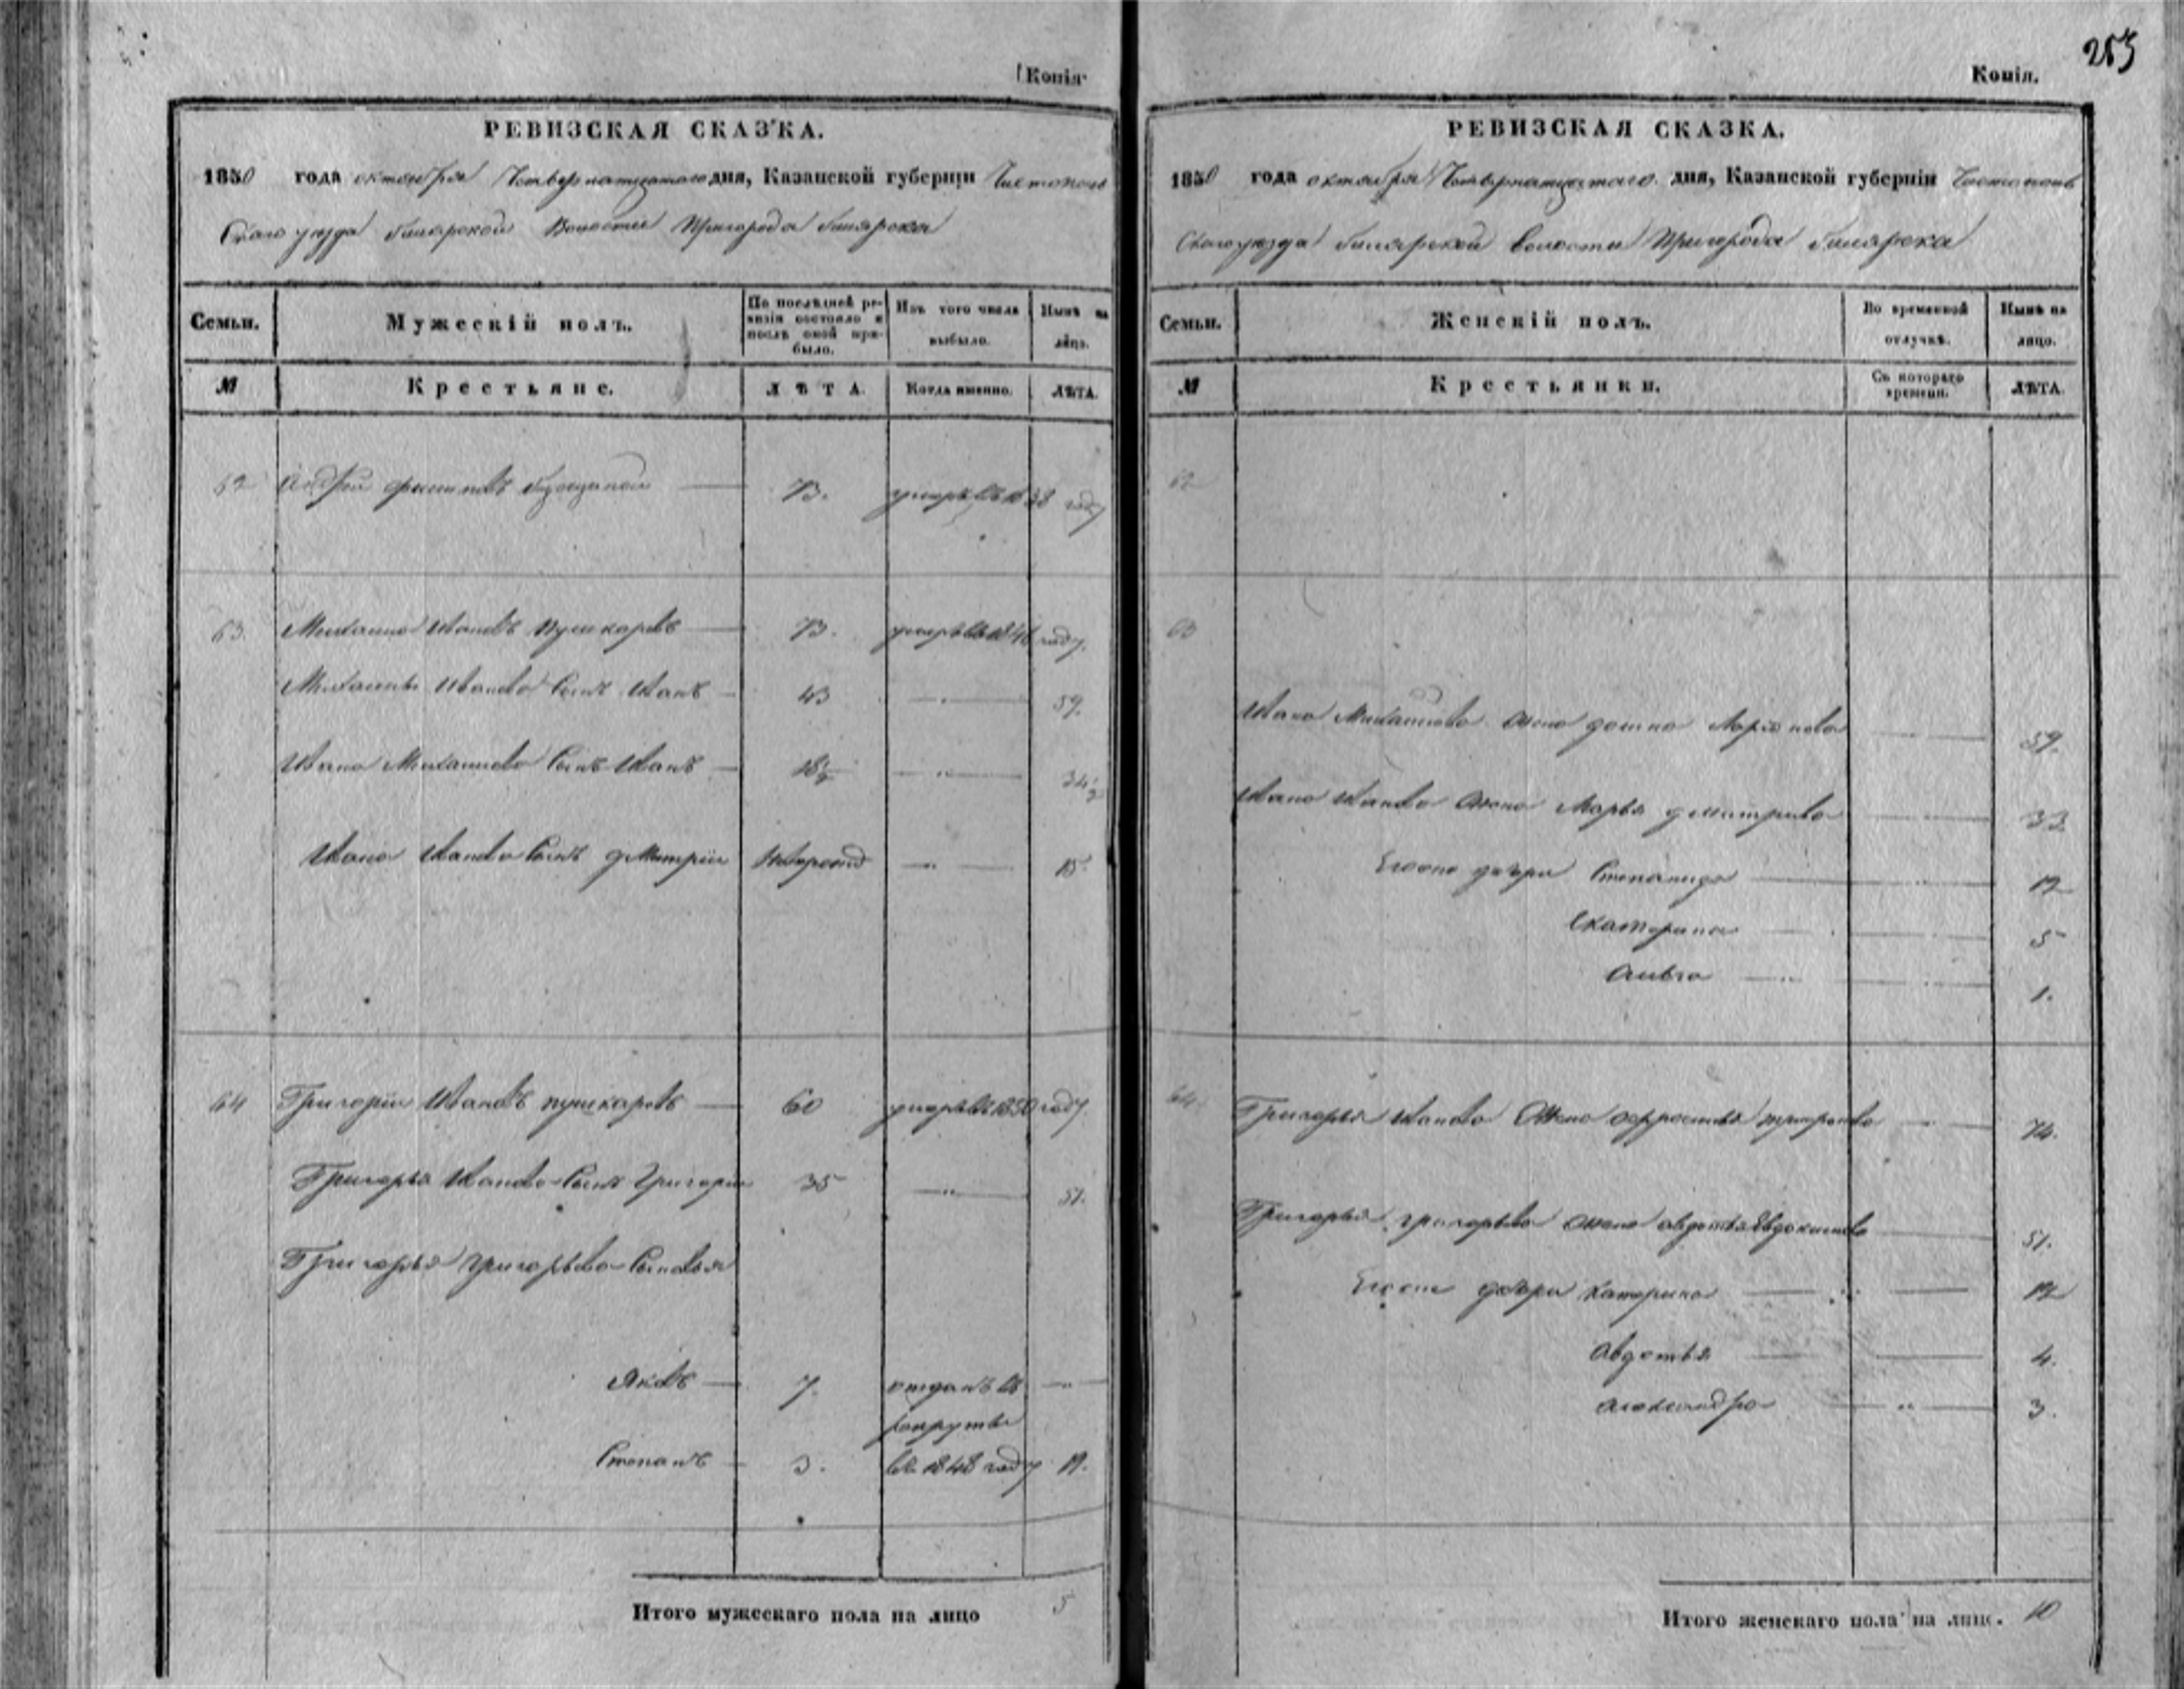 253
Копія.
РЕВИЗСКАЯ СКАЗКА.
1850 года октября Четвернатцатаго дня, Казанской губерніи Чистополь
Скаго уезда билярской Волости Пригорода билярска
Семьи. Мужескій полъ. По послѣдней ревизіи состояло и послѣ оной прибыло. Изъ того числа выбыло. Нынѣ на лицо.
№ Крестьяне. ЛѢТА. Когда именно. ЛѢТА.
62 Андрей 73. умеръ въ 1838 году
63. Михаила Ивановъ Пушкаревъ 73. умеръ въ 1846 году.
Михаилы Иванова Сынъ Иванъ 43 59.
Ивана Михаилова Сынъ Иванъ 18½ 34½
Ивана Иванова Сынъ дмитрій Новорожд 15
64 Григорій Ивановъ пушкаревъ 60 умеръ въ 1850 году.
Григорья Иванова Сынъ Григорій 35 51.
Григорья Григорьева Сыновья
Яковъ 7. отданъ въ
рекруты
Степанъ 3. въ 1848 году 19.
Итого мужескаго пола на лицо 5
Копія.
РЕВИЗСКАЯ СКАЗКА.
1850 года октября Четвернатцатаго дня, Казанской губерніи Чистополь
Скаго уезда билярской Волости Пригорода билярска
Семьи. Женскій полъ. Во временной отлучкѣ. Нынѣ на лицо.
№ Крестьянки. Съ котораго времени. ЛѢТА.
62
63
Ивана Михаилова жена Ларіонова 59.
Ивана Иванова жена Марья дмитрива 33
дочери Степанида 12
Екатерина 5
Ольга 1.
64
Григорья Иванова Жена 74.
Григорья григорьева жена авдотья Евдокимова 51.
дочери Катерина 12
Авдотья 4.
Александра 3.
Итого женскаго пола на лицо. 10